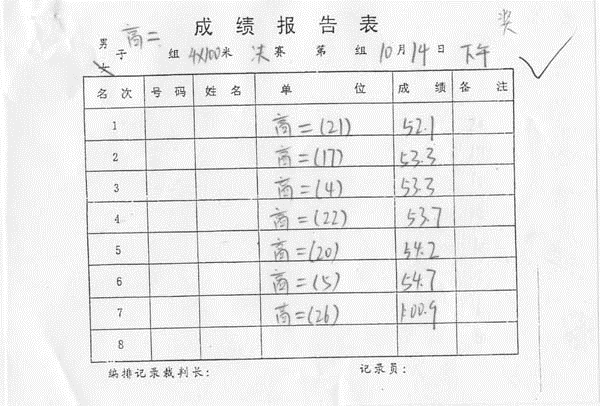 奖
成绩报告表
男子 高二 组 4X100米 决 赛 第 组 10月14日 下午
名次 号码 姓名 单位 成绩 备注
1 高二(21) 52.1
2 高二(17) 53.3
3 高二(4) 53.3
4 高二(22) 53.7
5 高二(20) 54.2
6 高二(5) 54.7
7 高二(26) 1:00.9
8
编排记录裁判长: 记录员: